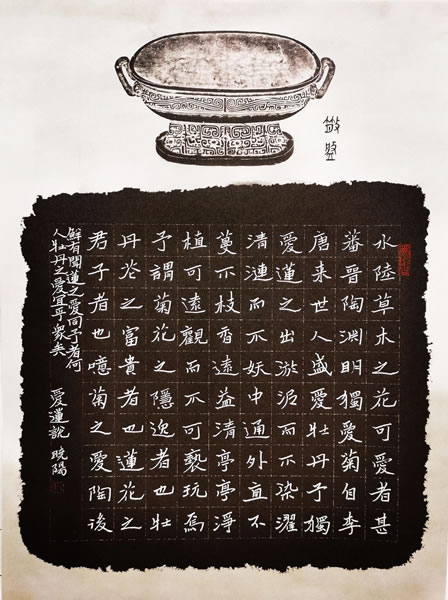 水陸草木之花可愛者甚
蕃晉陶淵明獨愛菊自李
唐来世人盛愛牡丹予獨
愛蓮之出淤泥而不染濯
清漣而不妖中通外直不
蔓不枝香遠益清亭亭淨
植可遠觀而不可褻玩焉
予謂菊花之隱逸者也牡
丹花之富貴者也蓮花之
君子者也噫菊之愛陶後
鮮有聞蓮之愛同予者何
人牡丹之愛宜乎衆矣
愛蓮說 曉陽